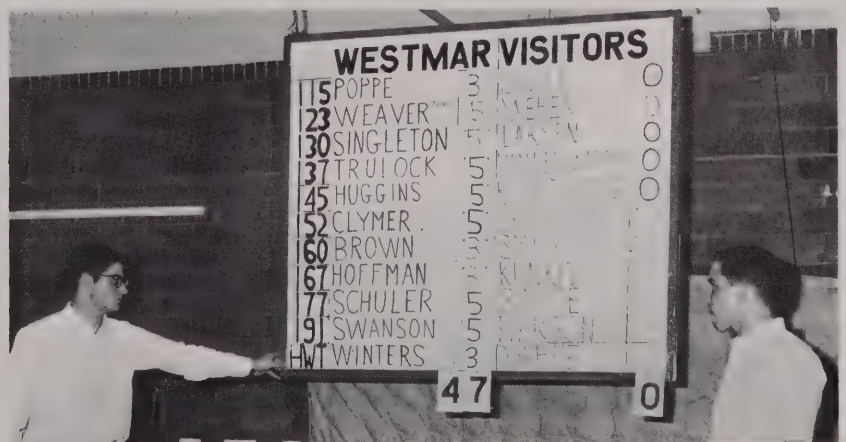 WESTMAR VISITORS
115 POPPE 3 0
123 WEAVER 5 0
130 SINGLETON 5 LARSEN 0
137 TRULOCK 5 0
145 HUGGINS 5 0
152 CLYMER. 5
160 BROWN 3
167 HOFFMAN
177 SCHULER 5
191 SWANSON 5
HWT WINTERS 3
47 0